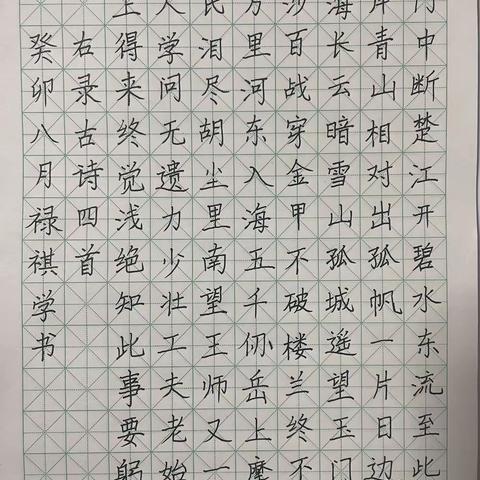 门中断楚江开碧水东流至此
岸青山相对出孤帆一片日边
海长云暗雪山孤城遥望玉门
沙百战穿金甲不破楼兰终不
万里河东入海五千仞岳上摩
民泪尽胡尘里南望王师又一
人学问无遗力少壮工夫老始
上得来终觉浅绝知此事要躬
右录古诗四首
癸卯八月禄祺学书